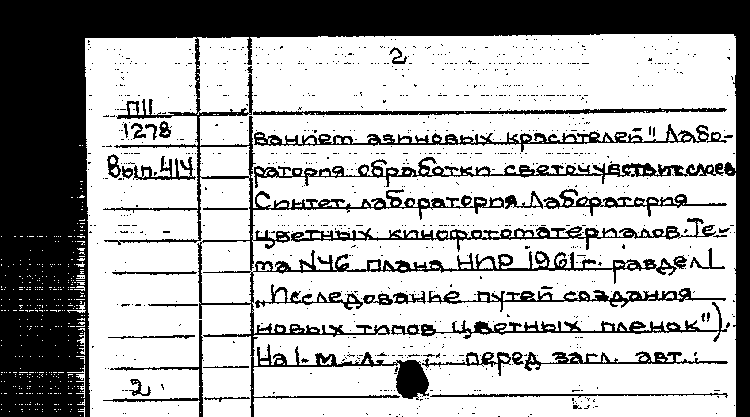 2
П11
1278
Вып.414
ванием азиновых красителей". Лабо-
ратория обработки светочувствит.слоев
Синтет. лаборатория. Лаборатория
цветных кинофотоматериалов. Те-
ма №46 плана НИР 1961 г. раздел I
„Исследование путей создания
новых типов цветных пленок").
На 1-м л. перед загл. авт.:
2.